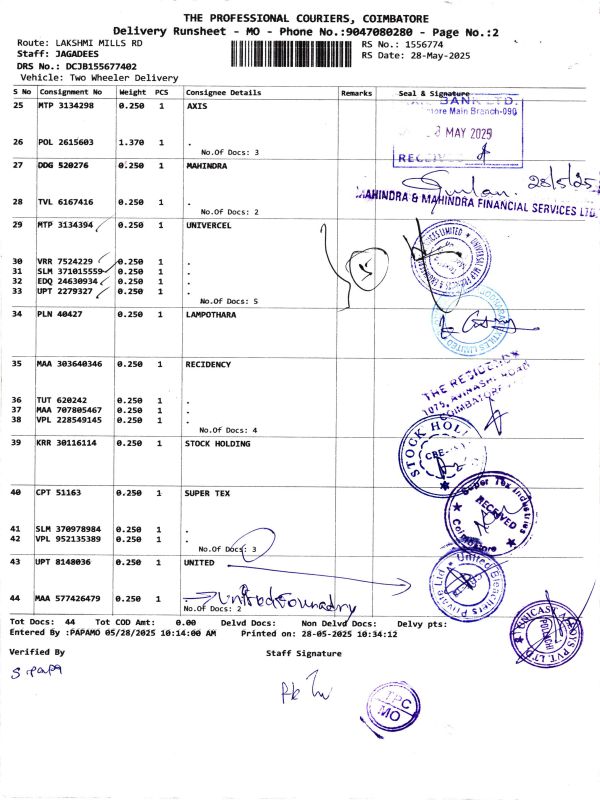 THE PROFESSIONAL COURIERS, COIMBATORE
Delivery Runsheet - MO - Phone No.:9047080280 - Page No.:2
Route: LAKSHMI MILLS RD
Staff: JAGADEES
DRS No.: DCJB155677402
Vehicle: Two Wheeler Delivery
RS No.: 1556774
RS Date: 28-May-2025
S No Consignment No Weight PCS Consignee Details Remarks Seal & Signature
25 MTP 3134298 0.250 1 AXIS
BANK LTD.
ore Main Branch-090
MAY 2025
26 POL 2615603 1.370 1 .
No.Of Docs: 3
27 DDG 520276 0.250 1 MAHINDRA
28/5/25
MAHINDRA & MAHINDRA FINANCIAL SERVICES LTD.
28 TVL 6167416 0.250 1 .
No.Of Docs: 2
29 MTP 3134394 0.250 1 UNIVERCEL
30 VRR 7524229 0.250 1 .
31 SLM 371015559 0.250 1 .
32 EDQ 24630934 0.250 1 .
33 UPT 2279327 0.250 1 .
No.Of Docs: 5
5
34 PLN 40427 0.250 1 LAMPOTHARA
35 MAA 303640346 0.250 1 RECIDENCY
THE RESIDENCY
1075, AVINASHI ROAD
COIMBATORE
36 TUT 620242 0.250 1 .
37 MAA 707805467 0.250 1 .
38 VPL 228549145 0.250 1 .
No.Of Docs: 4
39 KRR 30116114 0.250 1 STOCK HOLDING
STOCK HOL
CBE
40 CPT 51163 0.250 1 SUPER TEX
Super Tex Industries
RECEIVED
Coimbatore
41 SLM 370978984 0.250 1 .
42 VPL 952135389 0.250 1 .
No.Of Docs: 3
43 UPT 8148036 0.250 1 UNITED
44 MAA 577426479 0.250 1 .
United Foundry
No.Of Docs: 2
Tot Docs: 44 Tot COD Amt: 0.00 Delvd Docs: Non Delvd Docs: Delvy pts:
Entered By :PAPAMO 05/28/2025 10:14:00 AM Printed on: 28-05-2025 10:34:12
Verified By
Staff Signature
TPC
MO